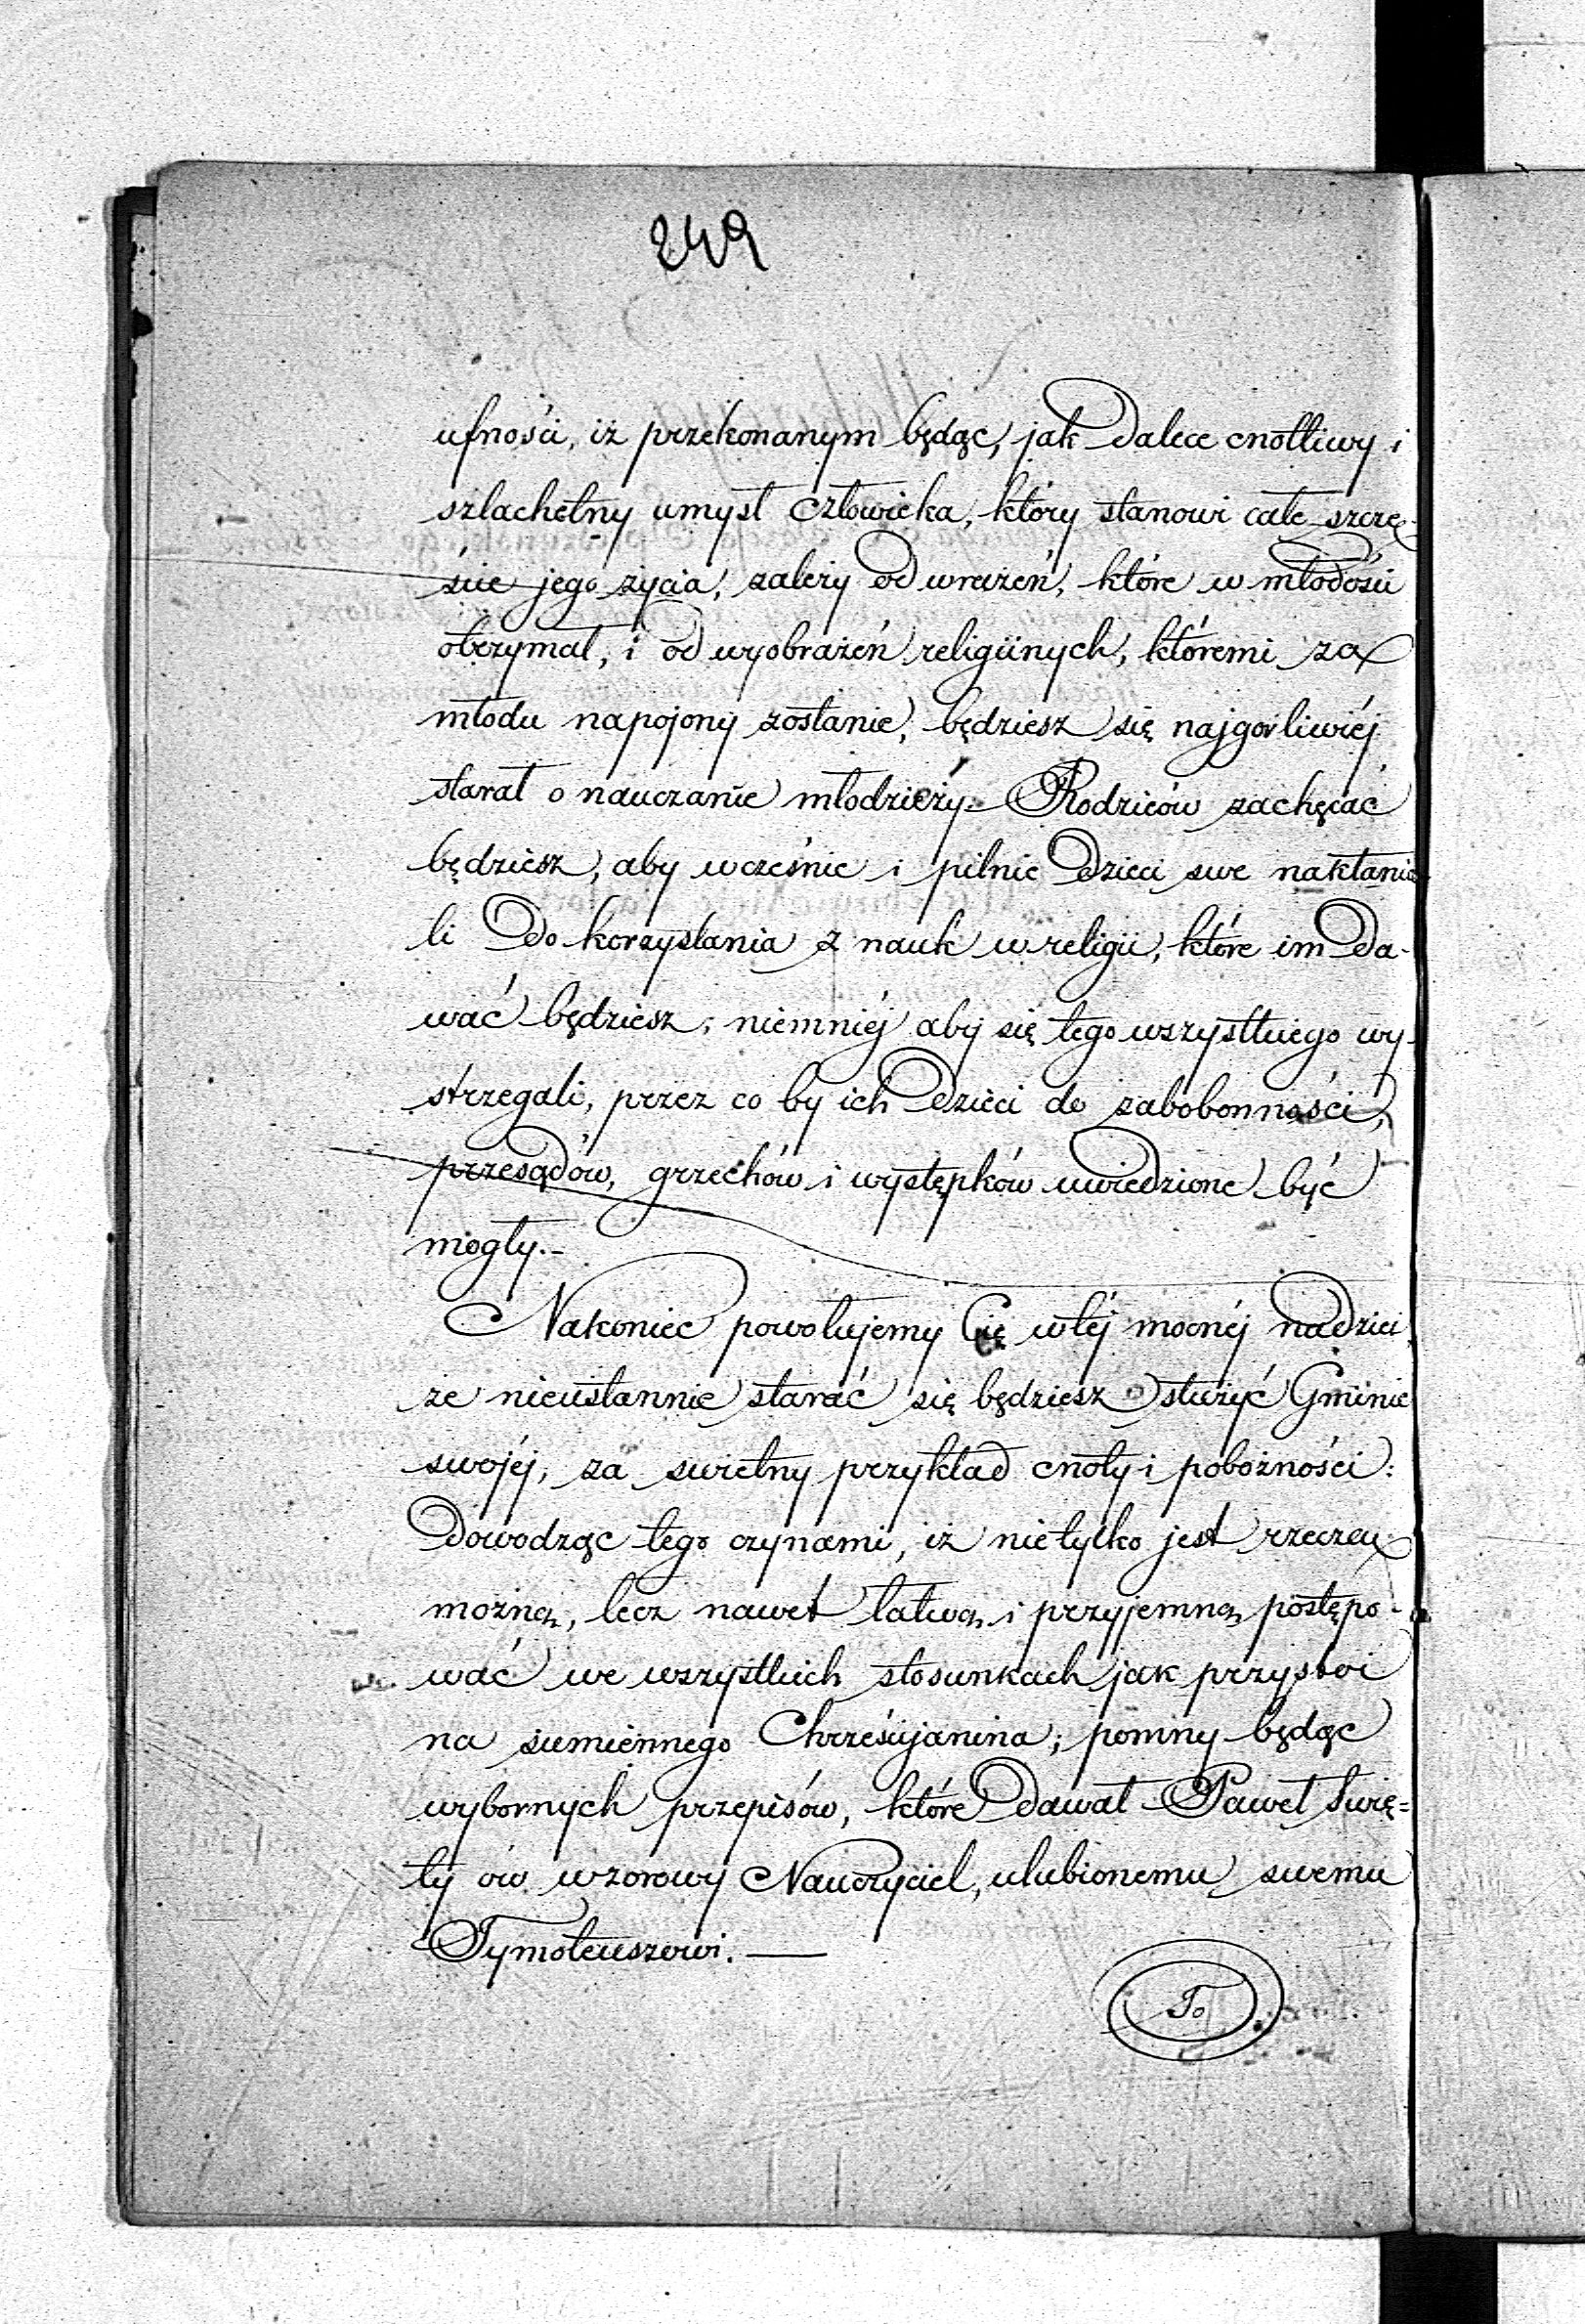 249
ufności, iż przekonanym będąc, jak dalece cnotliwy i
szlachetny umysł człowieka, który stanowi całe szczę-
ście jego życia, zależy od wrażeń, które w młodości
otrzymał, i od wyobrażeń religiinych, któremi za
młodu napojony zostanie, będziesz się najgorliwiéj
starał o nauczanie młodzieży.- Rodziców zachęcać
będziesz, aby wcześnie i pilnie dzieci swe nakłania
li do korzystania z nauk w religii, które im da-
wać będziesz; niemniéj aby się tego wszystkiego wy-
strzegali, przez co by ich dzieci do zabobonności,
przesądów, grzechów i występków uwiedzione być
mogły.-
Nakoniec powołujemy Cię w téj mocnéj nadziei
że nieustannie starać się będziesz służyć Gminie
swojéj, za swietny przykład cnoty i pobożności:
dowodząc tego czynami, iż nietylko jest rzeczą
możną, lecz nawet łatwą i przyjemną postępo-
wać we wszystkich stosunkach jak przystoi
na sumiennego Chrześcijanina; pomny będąc
wybornych przepisów, które dawał Paweł Świę=
ty ów wzorowy Nauczyciel, ulubionemu swemu
Tymoteuszowi. —
To